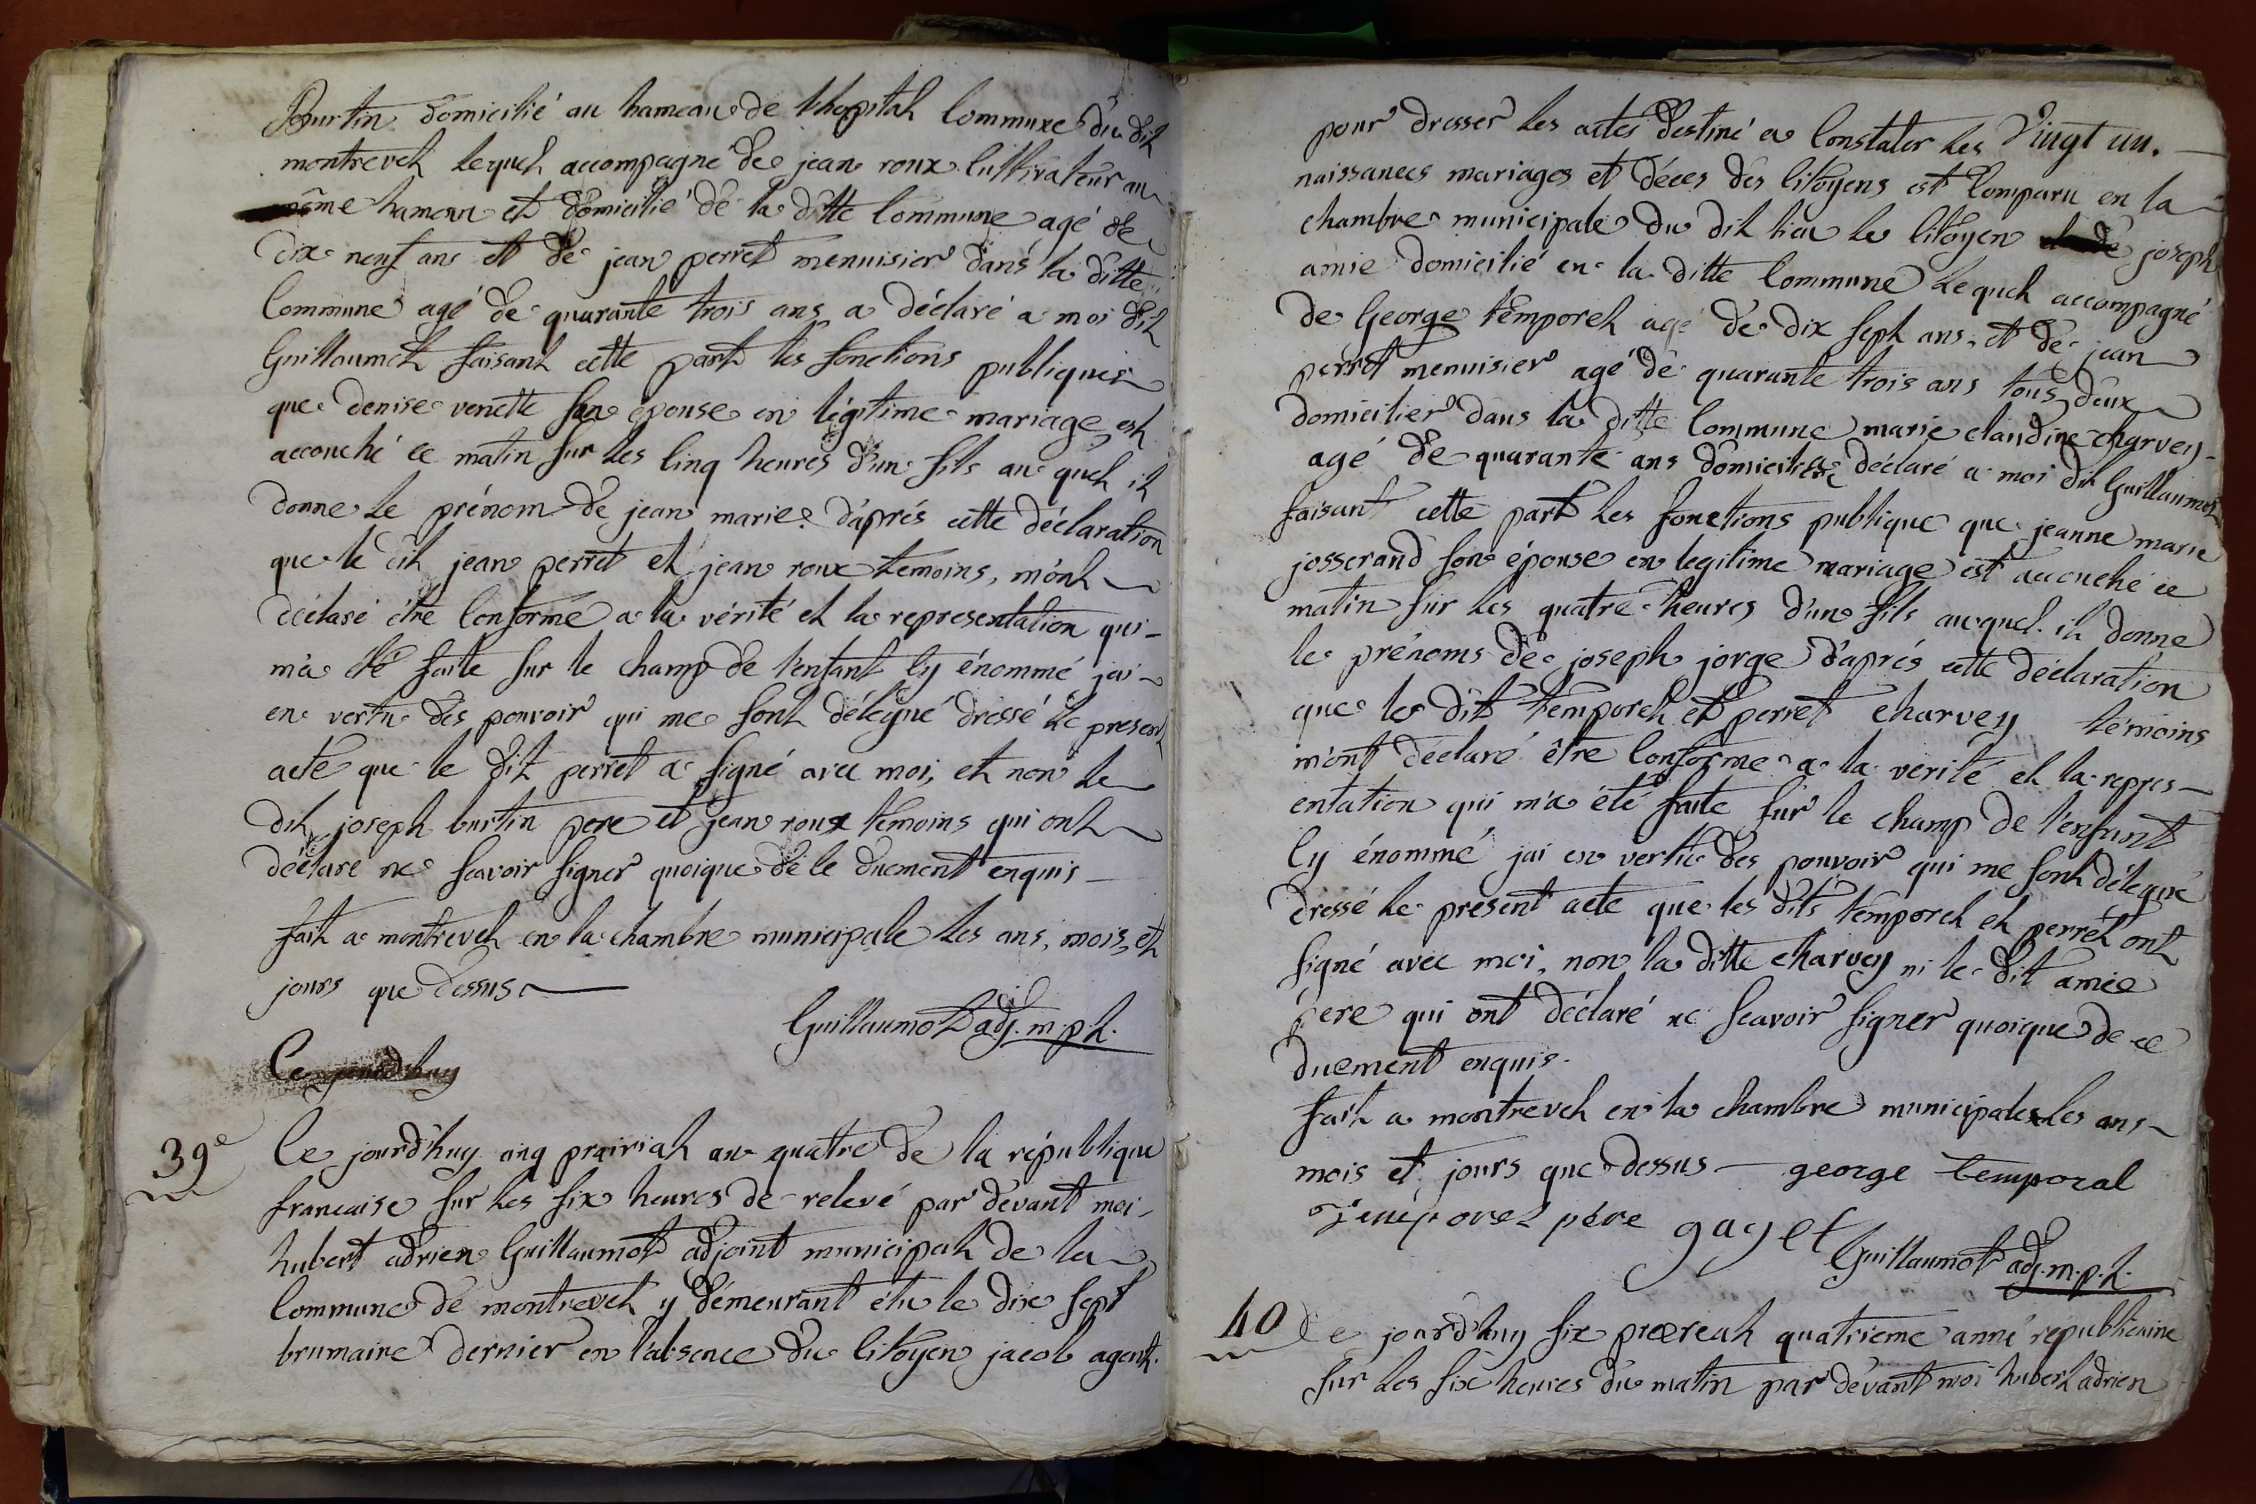 Burtin domicilié au hameau de l'hopital Commune du dit
montrevel lequel accompagné de jean roux Cultivateur au
même hameau et domicilié de la ditte Commune agé de
dix neuf ans et de jean perret menuisier dans la ditte
Commune agé de quarante trois ans a déclaré a moi dit
Guillaumot faisant cette part les fonctions publiques
que denise venette son épouse en légitime mariage est
accouché ce matin sur les Cinq heures d'un fils au quel il
donne le prénom de jean marie. d'aprés cette déclaration
que le dit jean perret et jean roux temoins, m'ont
déclaré être Conforme a la vérité et la representation qui
m'a été faite sur le champ de l'enfant Cy énommé j'ai
en vertu des pouvoir qui me sont délégué dressé le present
acte que le dit perret a signé avec moi, et non le
dit joseph burtin pere et jean roux témoins qui ont
déclaré ne scavoir signer quoique de le duement enquis
fait a montrevel en la chambre municipale les ans, mois, et
jours que dessus
Guillaumot adj. m.p.l.
Ce jourd'huy
39e Ce jourd'huy cinq prairial an quatre de la république
francaise sur les six heures de relevé par devant moi
hubert adrien Guillaumot adjoint municipal de la
Commune de montrevel y démeurant élu le dix sept
brumaire dernier en l'absence du Citoyen jacob agent.
pour dresser les actes destiné a Constater les Vingt un.
naissances mariages et déces des Citoyens est Comparu en la
chambre municipale du dit lieu le Citoyen joseph
amie domicilié en la ditte Commune lequel accompagné
de George temporel agé de dix sept ans, et de jean
perret menuisier agé de quarante trois ans tous deux
domicilier dans la ditte Commune marie claudine charvey
agé de quarante ans domiciliée déclaré a moi dit Guillaumot
faisant cette part les fonctions publique que jeanne marie
josserand son épouse en legitime mariage est accouché ce
matin sur les quatre heures d'un fils auquel il donne
le prénoms de joseph jorge d'aprés cette déclaration
que le dit temporel et perret charvey témoins
m'ont déclaré être Conforme a la vérité et la repres-
entation qui m'a été faite sur le champ de l'enfant
Cy énommé j'ai en vertu des pouvoir qui me sont délégué
dressé le présent acte que les dits temporel et perret ont
signé avec moi, non la ditte charvey ni le dit amie
pere qui ont déclaré ne scavoir signer quoique de ce
duement enquis.
fait a montrevel en la chambre municipale les ans
mois et jours que dessus george temporal
Temporel pére gayet
Guillaumot adj. m.p.l.
40 Ce jourd'huy six prereal quatrieme anné republicaine
sur les six heures du matin par devant moi hubert adrien